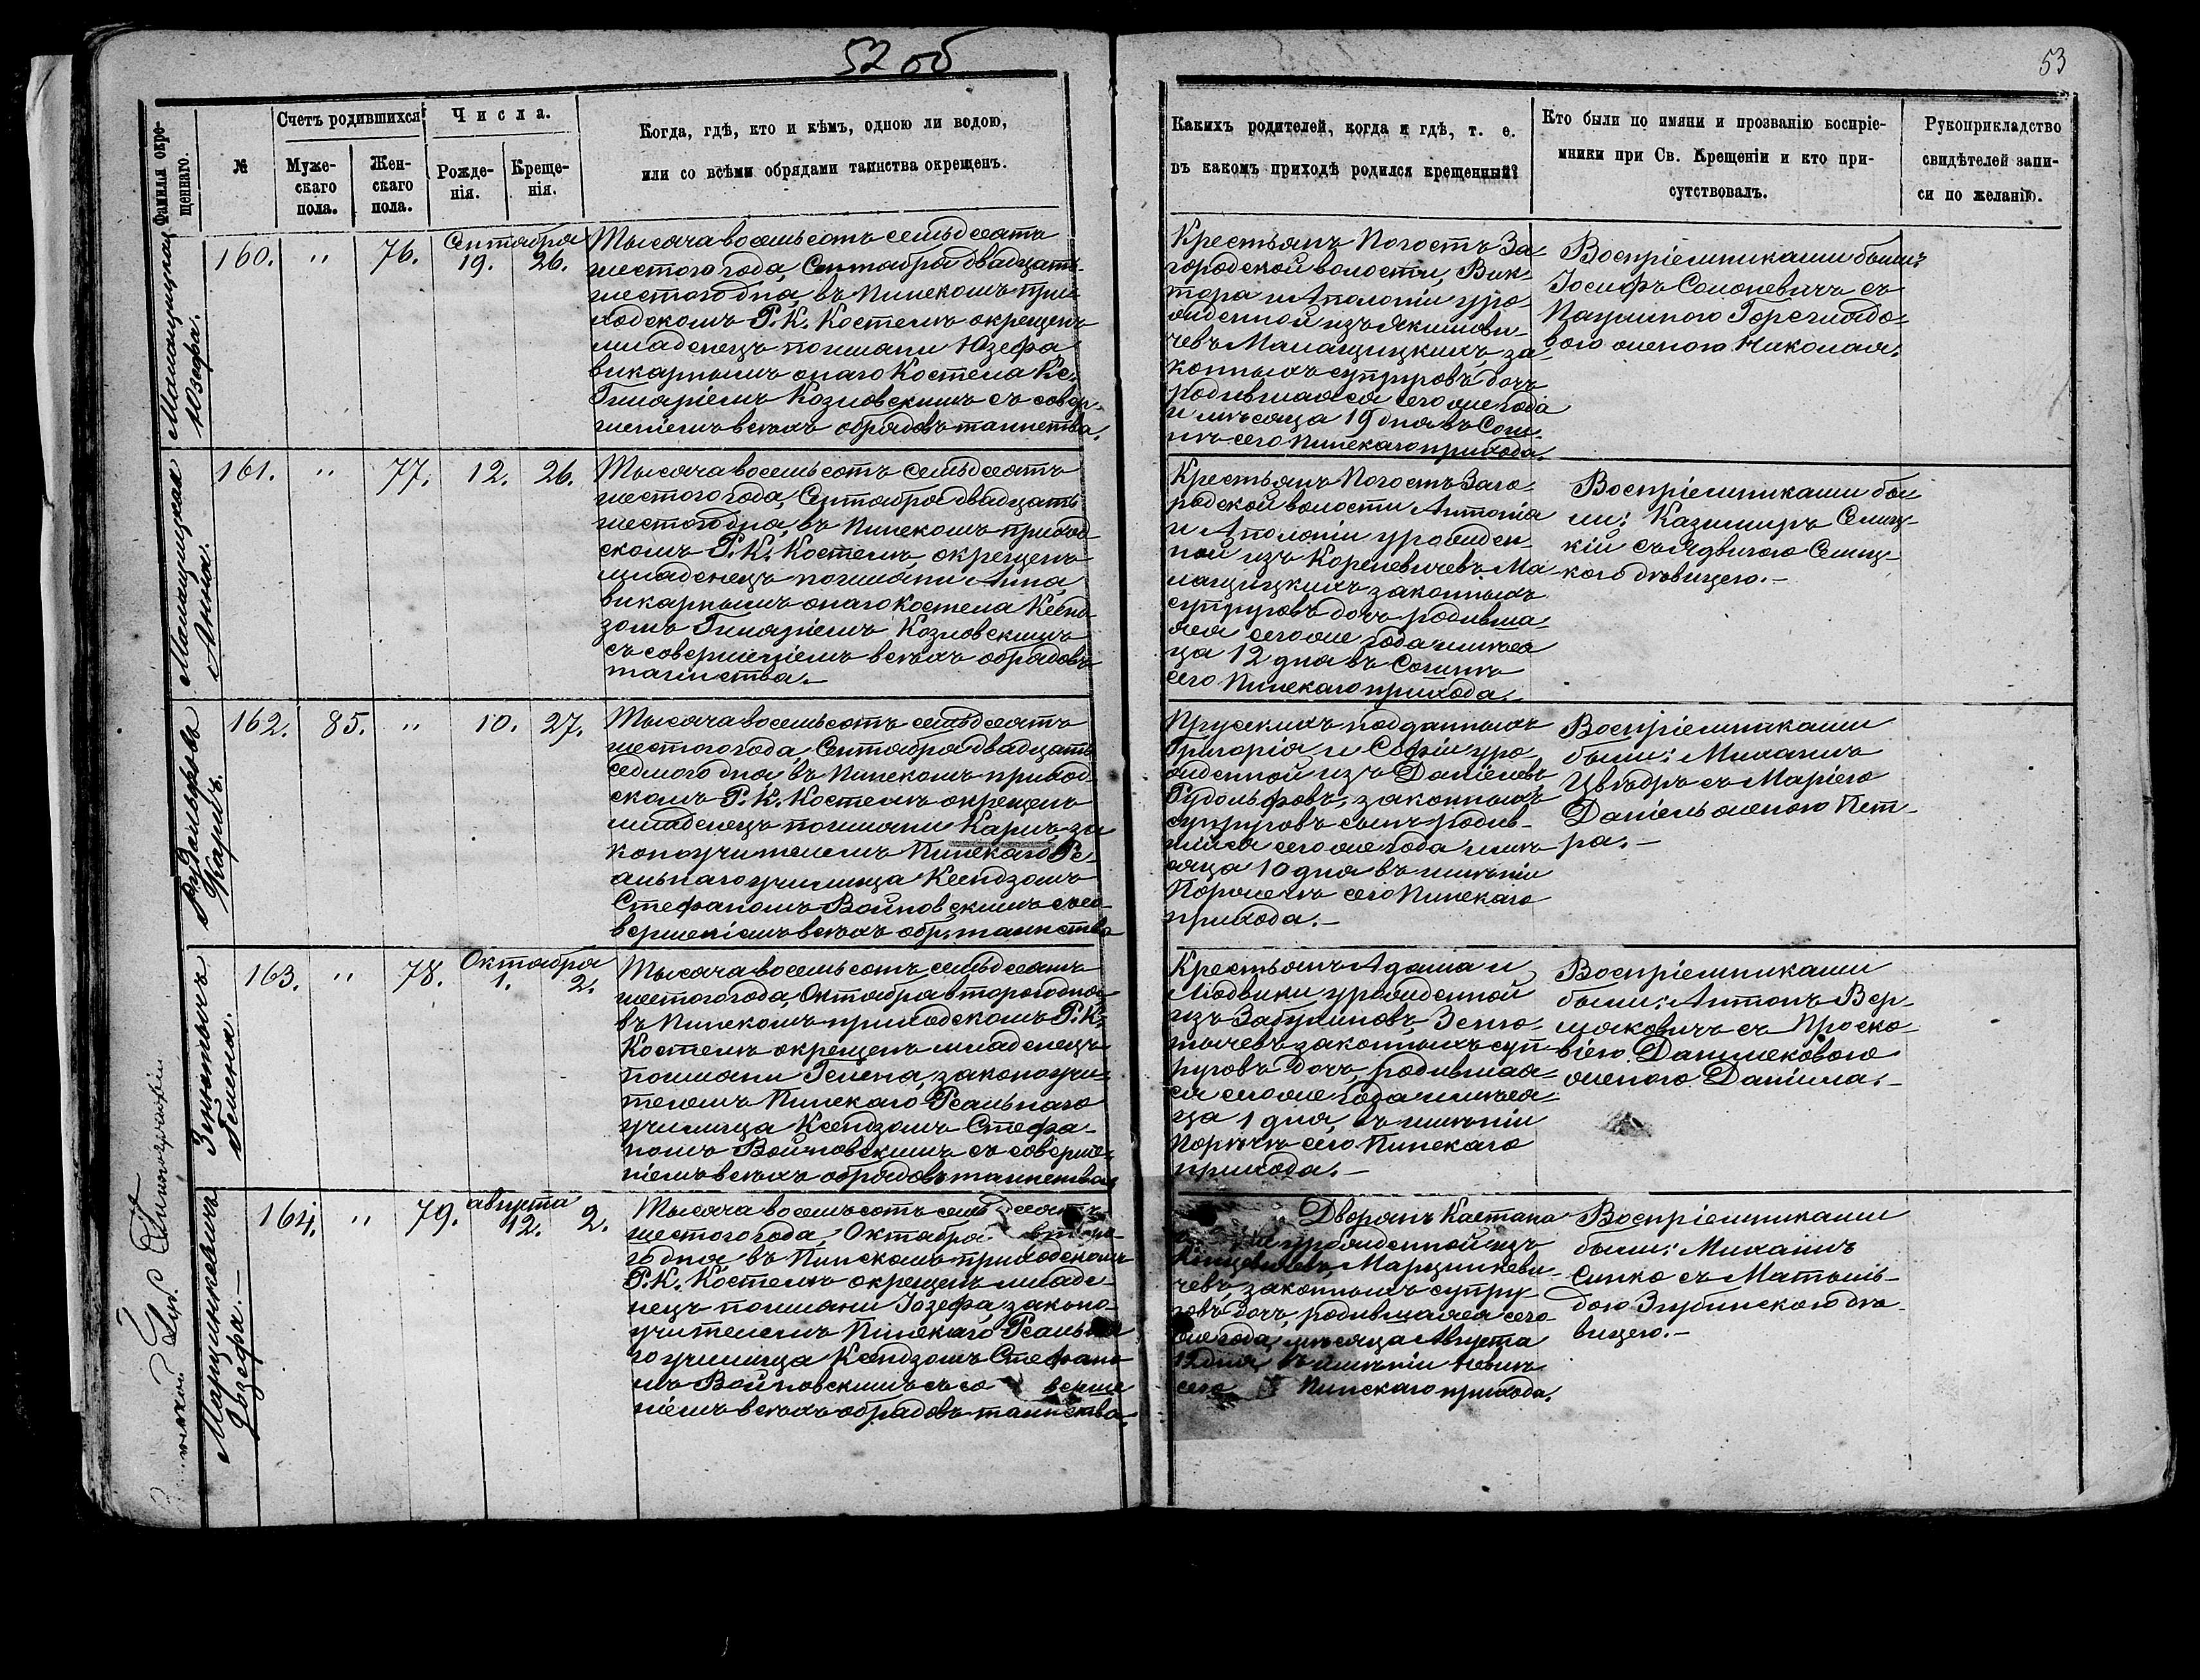 52 об
53
Фамилія окрещеннаго.
№
Счетъ родившихся
Мужескаго пола.
Женскаго пола.
Числа.
Рожденія.
Крещенія.
Когда, гдѣ, кто и кѣмъ, одною ли водою,
или со всѣми обрядами таинства окрещенъ.
Какихъ родителей, когда и гдѣ, т. е.
въ какомъ приходѣ родился крещенный?
Кто были по имяни и прозванію воспріе-
мники при Св. Крещеніи и кто при-
сутствовалъ.
Рукоприкладство
свидѣтелей запи-
си по желанію.
Малащицкая
Юзефа.
160. " 76.
Сентября
19. 26.
Тысяча восемьсотъ семьдсятъ
шестого года, Сентября двадцать
шестого дня, въ Пинскомъ при-
ходскомъ Р. К. Костелѣ окрещенъ
младенецъ по имани Юзефа,
викарнымъ онаго Костела Кс.
Гиляріемъ Козловскимъ съ совер-
шеніемъ всѣхъ обрядовъ таинства.
Крестьянъ Погостъ За-
городской волости, Вик-
тора и Аполоніи уро-
жденной изъ Якимови-
чевъ Малащицкихъ, за-
конныхъ супруговъ дочь
родившаяся сего же года
и мѣсяца 19 дня въ Соши-
нѣ сего Пинскаго прихода.
Воспріемниками были:
Іосифъ Солоневичъ съ
Паулиною Горегля до-
вого женою Николая.
Малащицкая
Анна.
161. " 77. 12. 26.
Тысяча восемьсотъ семьдсятъ
шестого года, Сентября двадцать
шестого дня, въ Пинскомъ приход-
скомъ Р. К. Костелѣ, окрещенъ
младенецъ по имани Анна,
викарнымъ онаго Костела Ксенд-
зомъ Гиляріемъ Козловскимъ
съ совершеніемъ всѣхъ обрядовъ
таинства.–
Крестьянъ Погостъ Заго-
родской волости Антонія
и Аполоніи урожден-
ной изъ Кореневичевъ Ма-
лащицкихъ законныхъ
супруговъ дочь родивша-
яся сего же года и мѣся-
ца 12 дня въ Сошинѣ
сего Пинскаго прихода.–
Воспріемниками бы-
ли: Казимиръ Сениц-
кій съ Ядвигою Сениц-
кою дѣвицею.–
Рудольфовъ
Карлъ.
162. 85. " 10. 27.
Тысяча восемьсотъ семьдсятъ
шестого года, Сентября двадцать
седмого дня въ Пинскомъ приход-
скомъ Р. К. Костелѣ окрещенъ
младенецъ по имани Карлъ, за-
коноучителемъ Пинскаго Ре-
альнаго училища Ксендзомъ
Стефаномъ Войновскимъ съ со-
вершеніемъ всѣхъ обр. таинства
Прусскихъ подданныхъ
Григорія и Софіи уро-
жденной изъ Даніелевъ
Рудольфовъ, законныхъ
супруговъ сынъ родив-
шійся сего же года и мѣ-
сяца 10 дня въ имѣніи
сего Пинскаго
прихода.–
Воспріемниками
были: Михаилъ
съ Маріею
Даніель женою Пет-
ра.–
Зенютычъ
Гелена.
163. " 78.
Октября
1. 2.
Тысяча восемьсотъ семьдсятъ
шестого года, Октября второго дня
въ Пинскомъ приходскомъ Р. К.
Костелѣ окрещенъ младенецъ
по имани Гелена, законоучи-
телемъ Пинскаго Реальнаго
училища Ксендзомъ Стефа-
номъ Войновскимъ съ соверше-
ніемъ всѣхъ обрядовъ таинства.
Крестьянъ Адама и
Людвики урожденной
изъ Зеню-
тычевъ законныхъ суп-
руговъ дочь, родившая-
ся сего же года и мѣся-
ца 1 дня, въ имѣніи
Порѣчѣ сего Пинскаго
прихода.–
Воспріемниками
были: Антонъ Вер-
шаковичъ съ Проско-
віею Данилековою
женою Даніила.–
Марцинкевичъ
Юзефа.–
164. " 79.
августа
12. 2.
Тысяча восемьсотъ семьдсятъ
шестого года, Октября второ-
го дня, въ Пинскомъ приходскомъ
Р. К. Костелѣ окрещенъ младе-
нецъ по имани Іозефа, законо-
учителемъ Пинскаго Реальна-
го училища Ксендзомъ Стефано-
мъ Войновскимъ съ со верше-
ніемъ всѣхъ обрядовъ таинства.
Дворянъ Каетана
урожденной изъ
Марцинкеви-
чевъ, законныхъ супру-
говъ дочь, родившаяся сего
же года, мѣсяца Августа
12 дня, въ имѣніи
сего Пинскаго прихода.
Воспріемниками
были: Михаилъ
Синко съ Матиль-
дою дѣ-
вицею.–